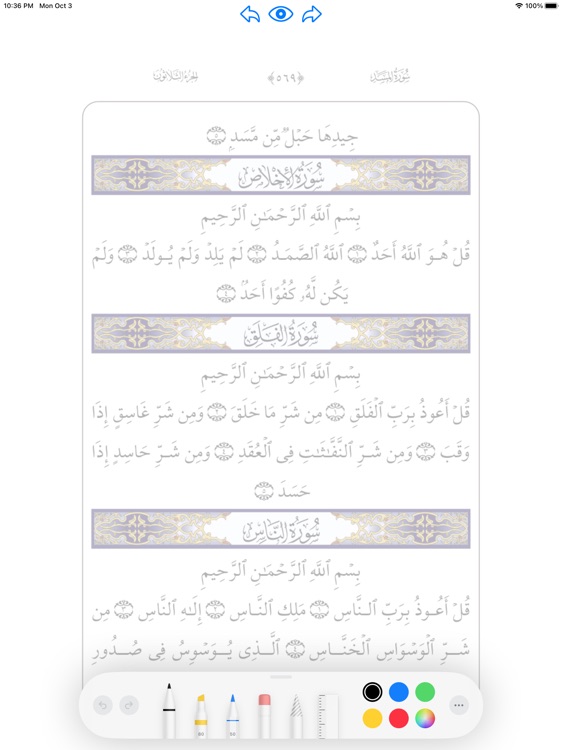 10:36 PM Mon Oct 3 100%
سُورَةُ المَسَدِ ﴿٥٦٩﴾ الجُزْءُ الثَّلَاثُونَ
جِيدِهَا حَبْلٌ مِّن مَّسَدٍۭ ٥
سُورَةُ الإِخْلَاصِ
بِسْمِ ٱللَّهِ ٱلرَّحْمَـٰنِ ٱلرَّحِيمِ
قُلْ هُوَ ٱللَّهُ أَحَدٌ ١ ٱللَّهُ ٱلصَّمَدُ ٢ لَمْ يَلِدْ وَلَمْ يُولَدْ ٣ وَلَمْ
يَكُن لَّهُۥ كُفُوًا أَحَدٌۢ ٤
سُورَةُ الفَلَقِ
بِسْمِ ٱللَّهِ ٱلرَّحْمَـٰنِ ٱلرَّحِيمِ
قُلْ أَعُوذُ بِرَبِّ ٱلْفَلَقِ ١ مِن شَرِّ مَا خَلَقَ ٢ وَمِن شَرِّ غَاسِقٍ إِذَا
وَقَبَ ٣ وَمِن شَرِّ ٱلنَّفَّـٰثَـٰتِ فِى ٱلْعُقَدِ ٤ وَمِن شَرِّ حَاسِدٍ إِذَا
حَسَدَ ٥
سُورَةُ النَّاسِ
بِسْمِ ٱللَّهِ ٱلرَّحْمَـٰنِ ٱلرَّحِيمِ
قُلْ أَعُوذُ بِرَبِّ ٱلنَّاسِ ١ مَلِكِ ٱلنَّاسِ ٢ إِلَـٰهِ ٱلنَّاسِ ٣ مِن
شَرِّ ٱلْوَسْوَاسِ ٱلْخَنَّاسِ ٤ ٱلَّذِى يُوَسْوِسُ فِى صُدُورِ
80 50